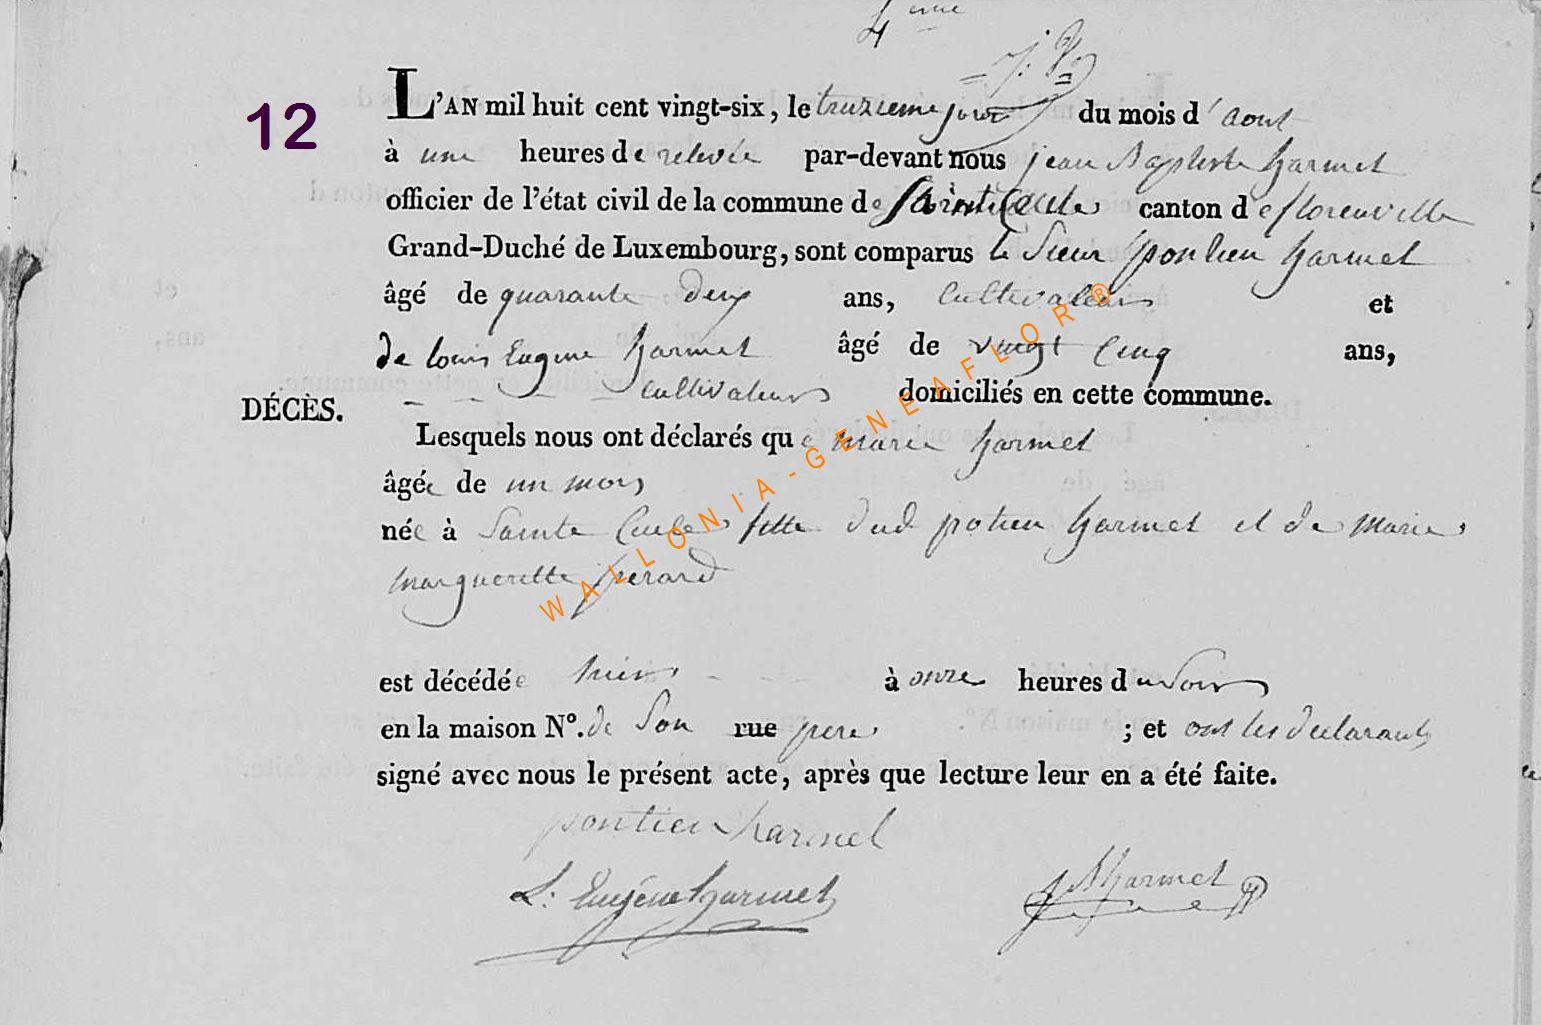 4 eme
12
L'AN mil huit cent vingt-six, le treuzieme jour du mois d'aout
à une heures de relevée par-devant nous jean Baptiste harmel
officier de l'état civil de la commune de Sainte Cecile canton de florenville
Grand-Duché de Luxembourg, sont comparus le Sieur pontien harmel
âgé de quarante deux ans, Cultivateur et
de louis Eugene harmel âgé de vingt Cinq ans,
Cultivateurs domiciliés en cette commune.
DÉCÈS.
Lesquels nous ont déclarés que marie harmel
âgée de un mois
née à Sainte Cecile fille dud potien harmel et de marie
margueritte perard
est décédée hier à onze heures du Soir
en la maison N°. de Son rue pere ; et ont les declarants
signé avec nous le présent acte, après que lecture leur en a été faite.
pontien harmel
L: Eugéne harmel
JB harmel
WALLONIA-GENEAFLOR®